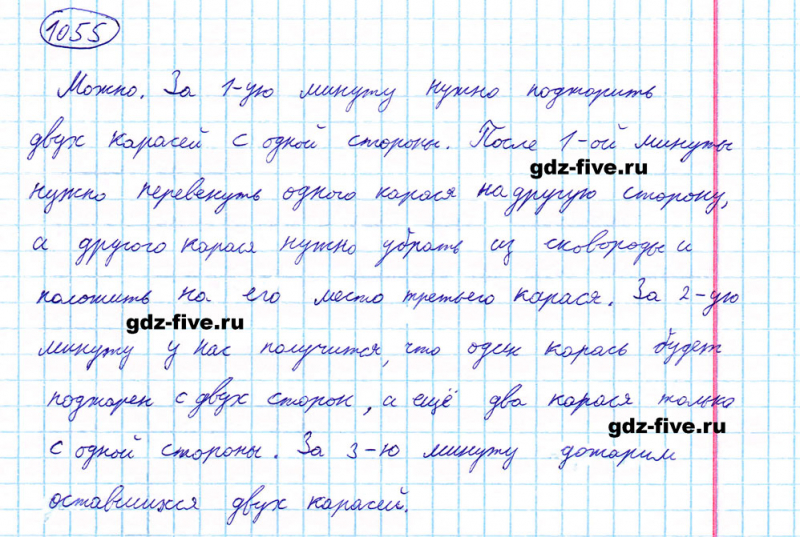 1055
Можно. За 1-ую минуту нужно поджарить
двух карасей с одной стороны. После 1-ой минуты
gdz-five.ru
нужно перевенуть одного карася на другую сторону,
а другого карася нужно убрать из сковороды и
положить на его место третьего карася. За 2-ую
gdz-five.ru
минуту у нас получится, что один карась будет
поджарен с двух сторон, а ещё два карася только
gdz-five.ru
с одной стороны. За 3-ю минуту дожарим
оставшихся двух карасей.